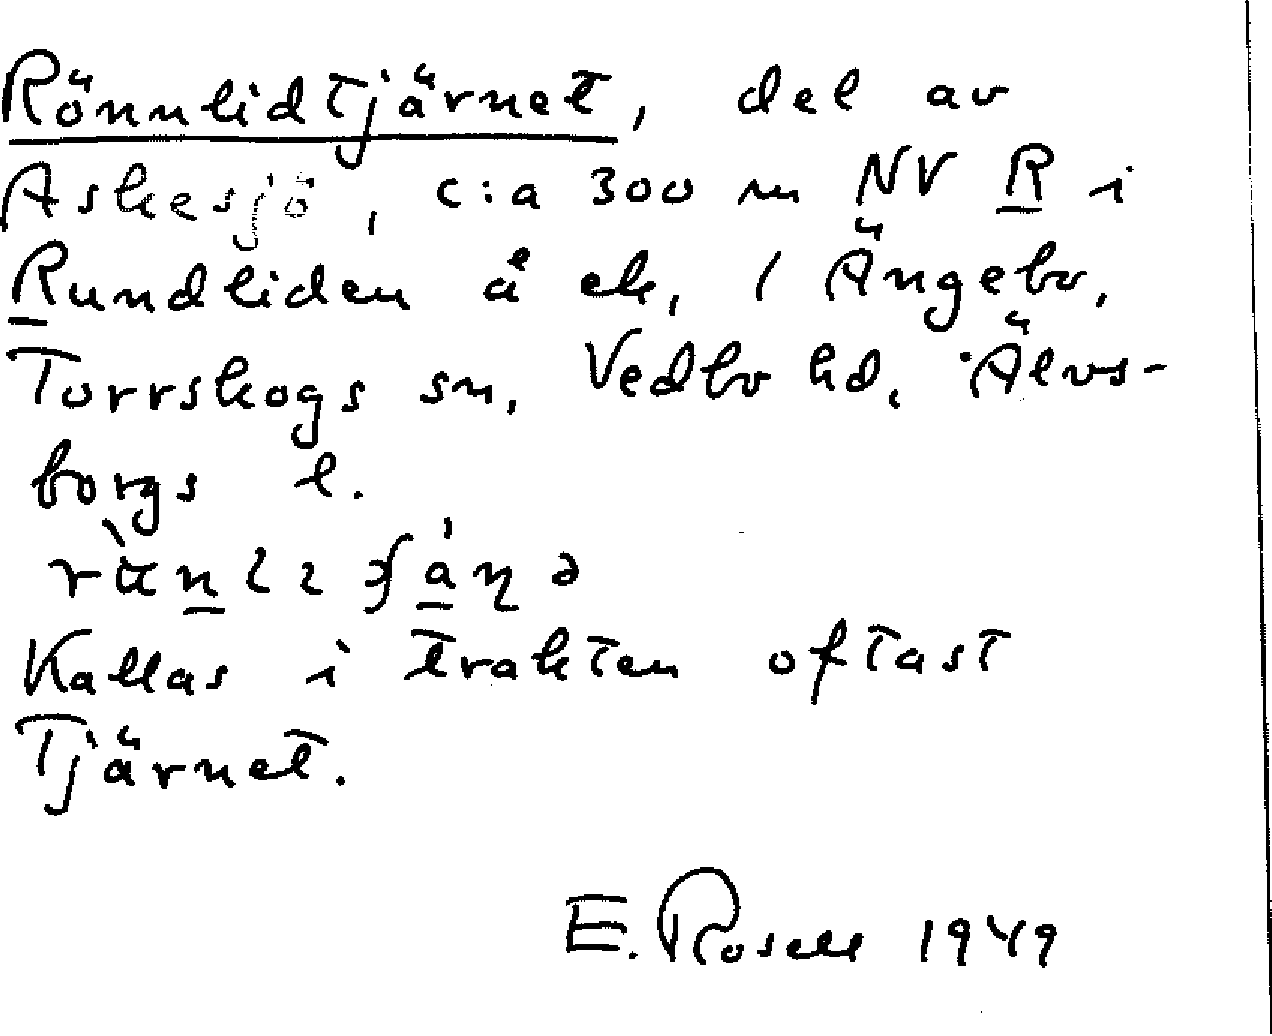 Rönnlidtjärnet, del av
Askesjö, c:a 300 m NV R i
Rundliden å ek, 1 Ängebo,
Torrskogs sn, Vedbo hd, Älvs-
borgs l.
Kallas i trakten oftast
Tjärnet.
E. Rosell 1949